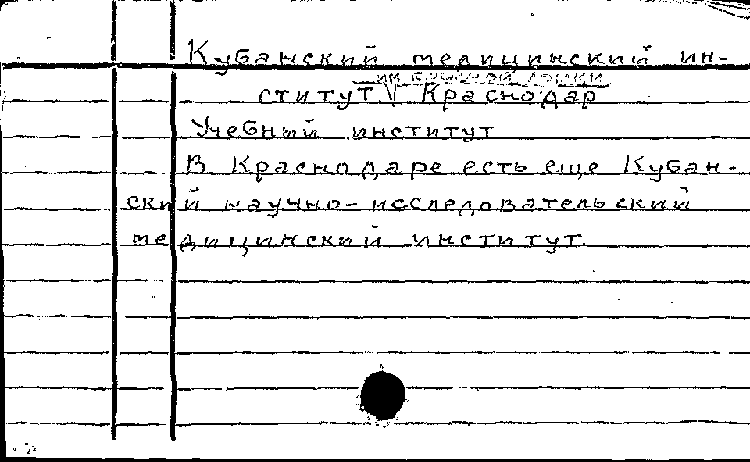 Кубанский медицинский ин-
им Красной Армии
ститут Краснодар
Учебный институт
В Краснодаре есть еще Кубан-
ский научно-исследовательский
медицинский институт.